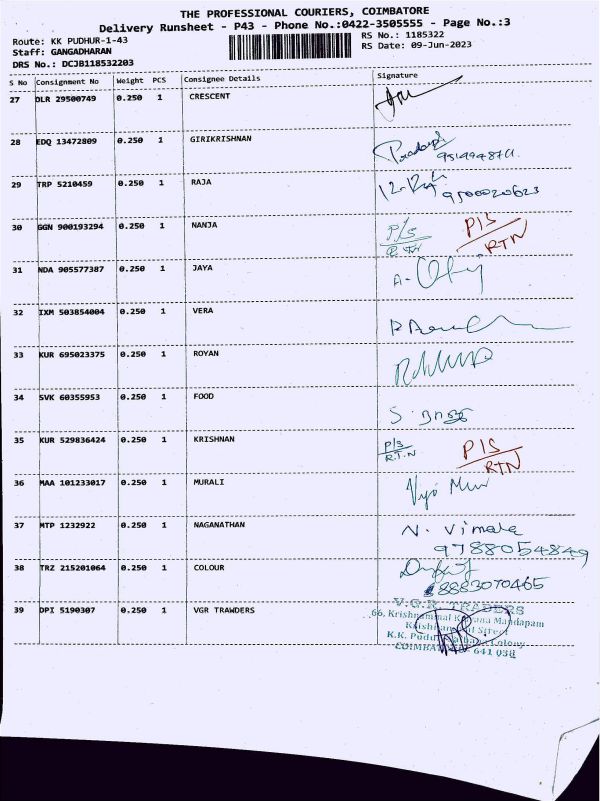 THE PROFESSIONAL COURIERS, COIMBATORE
Delivery Runsheet - P43 - Phone No.:0422-3505555 - Page No.:3
Route: KK PUDHUR-1-43
RS No.: 1185322
Staff: GANGADHARAN
RS Date: 09-Jun-2023
DRS No.: DCJB118532203
S No Consignment No Weight PCS Consignee Details Signature
27 DLR 29500749 0.250 1 CRESCENT
28 EDQ 13472809 0.250 1 GIRIKRISHNAN
29 TRP 5210459 0.250 1 RAJA 9500020623
30 GGN 900193294 0.250 1 NANJA P/S P/S
RTN RTN
31 NDA 905577387 0.250 1 JAYA
32 IXM 503854004 0.250 1 VERA
33 KUR 695023375 0.250 1 ROYAN
34 SVK 60355953 0.250 1 FOOD
35 KUR 529836424 0.250 1 KRISHNAN P/S P/S
R.T.N RTN
36 MAA 101233017 0.250 1 MURALI
37 MTP 1232922 0.250 1 NAGANATHAN N. Vimala
9788054849
38 TRZ 215201064 0.250 1 COLOUR
8883070465
39 DPI 5190307 0.250 1 VGR TRAWDERS
V.G.R TRADERS
66, Krishnammal Kalyana Mandapam
Street
K.K. Pudur Colony
COIMBATORE 641 038